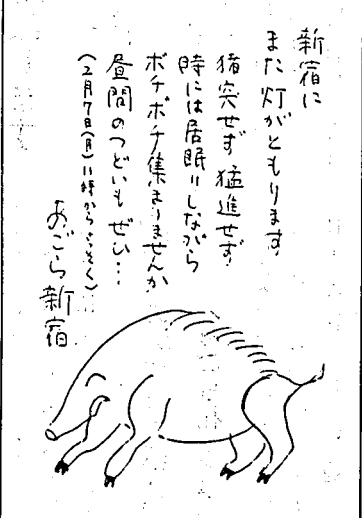 新宿に
また灯がともります
猪突せず猛進せず
時には居眠りしながら
ボチボチ集まりませんか
昼間のつどいもぜひ・・・
(2月7日(月)11時からさっそく)
あごら新宿